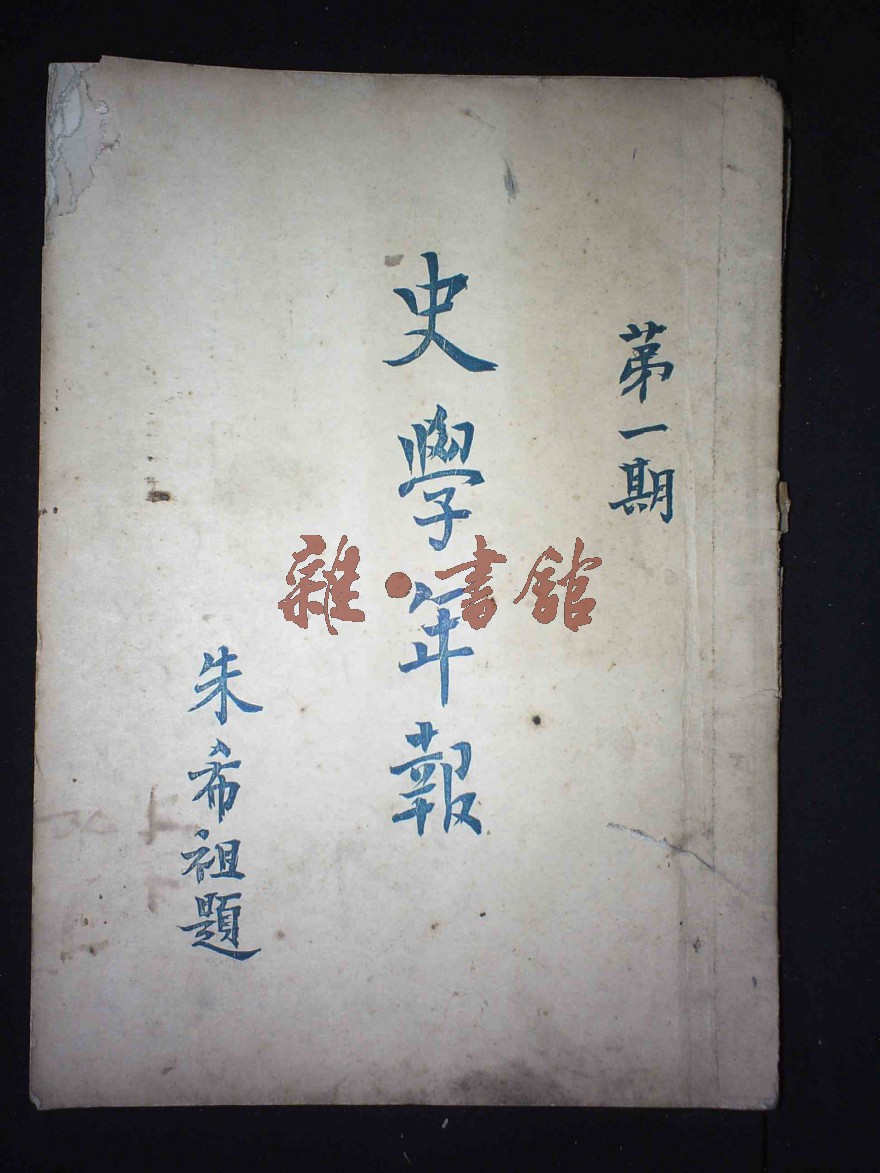 第一期
史學年報
朱希祖題
雜·書館